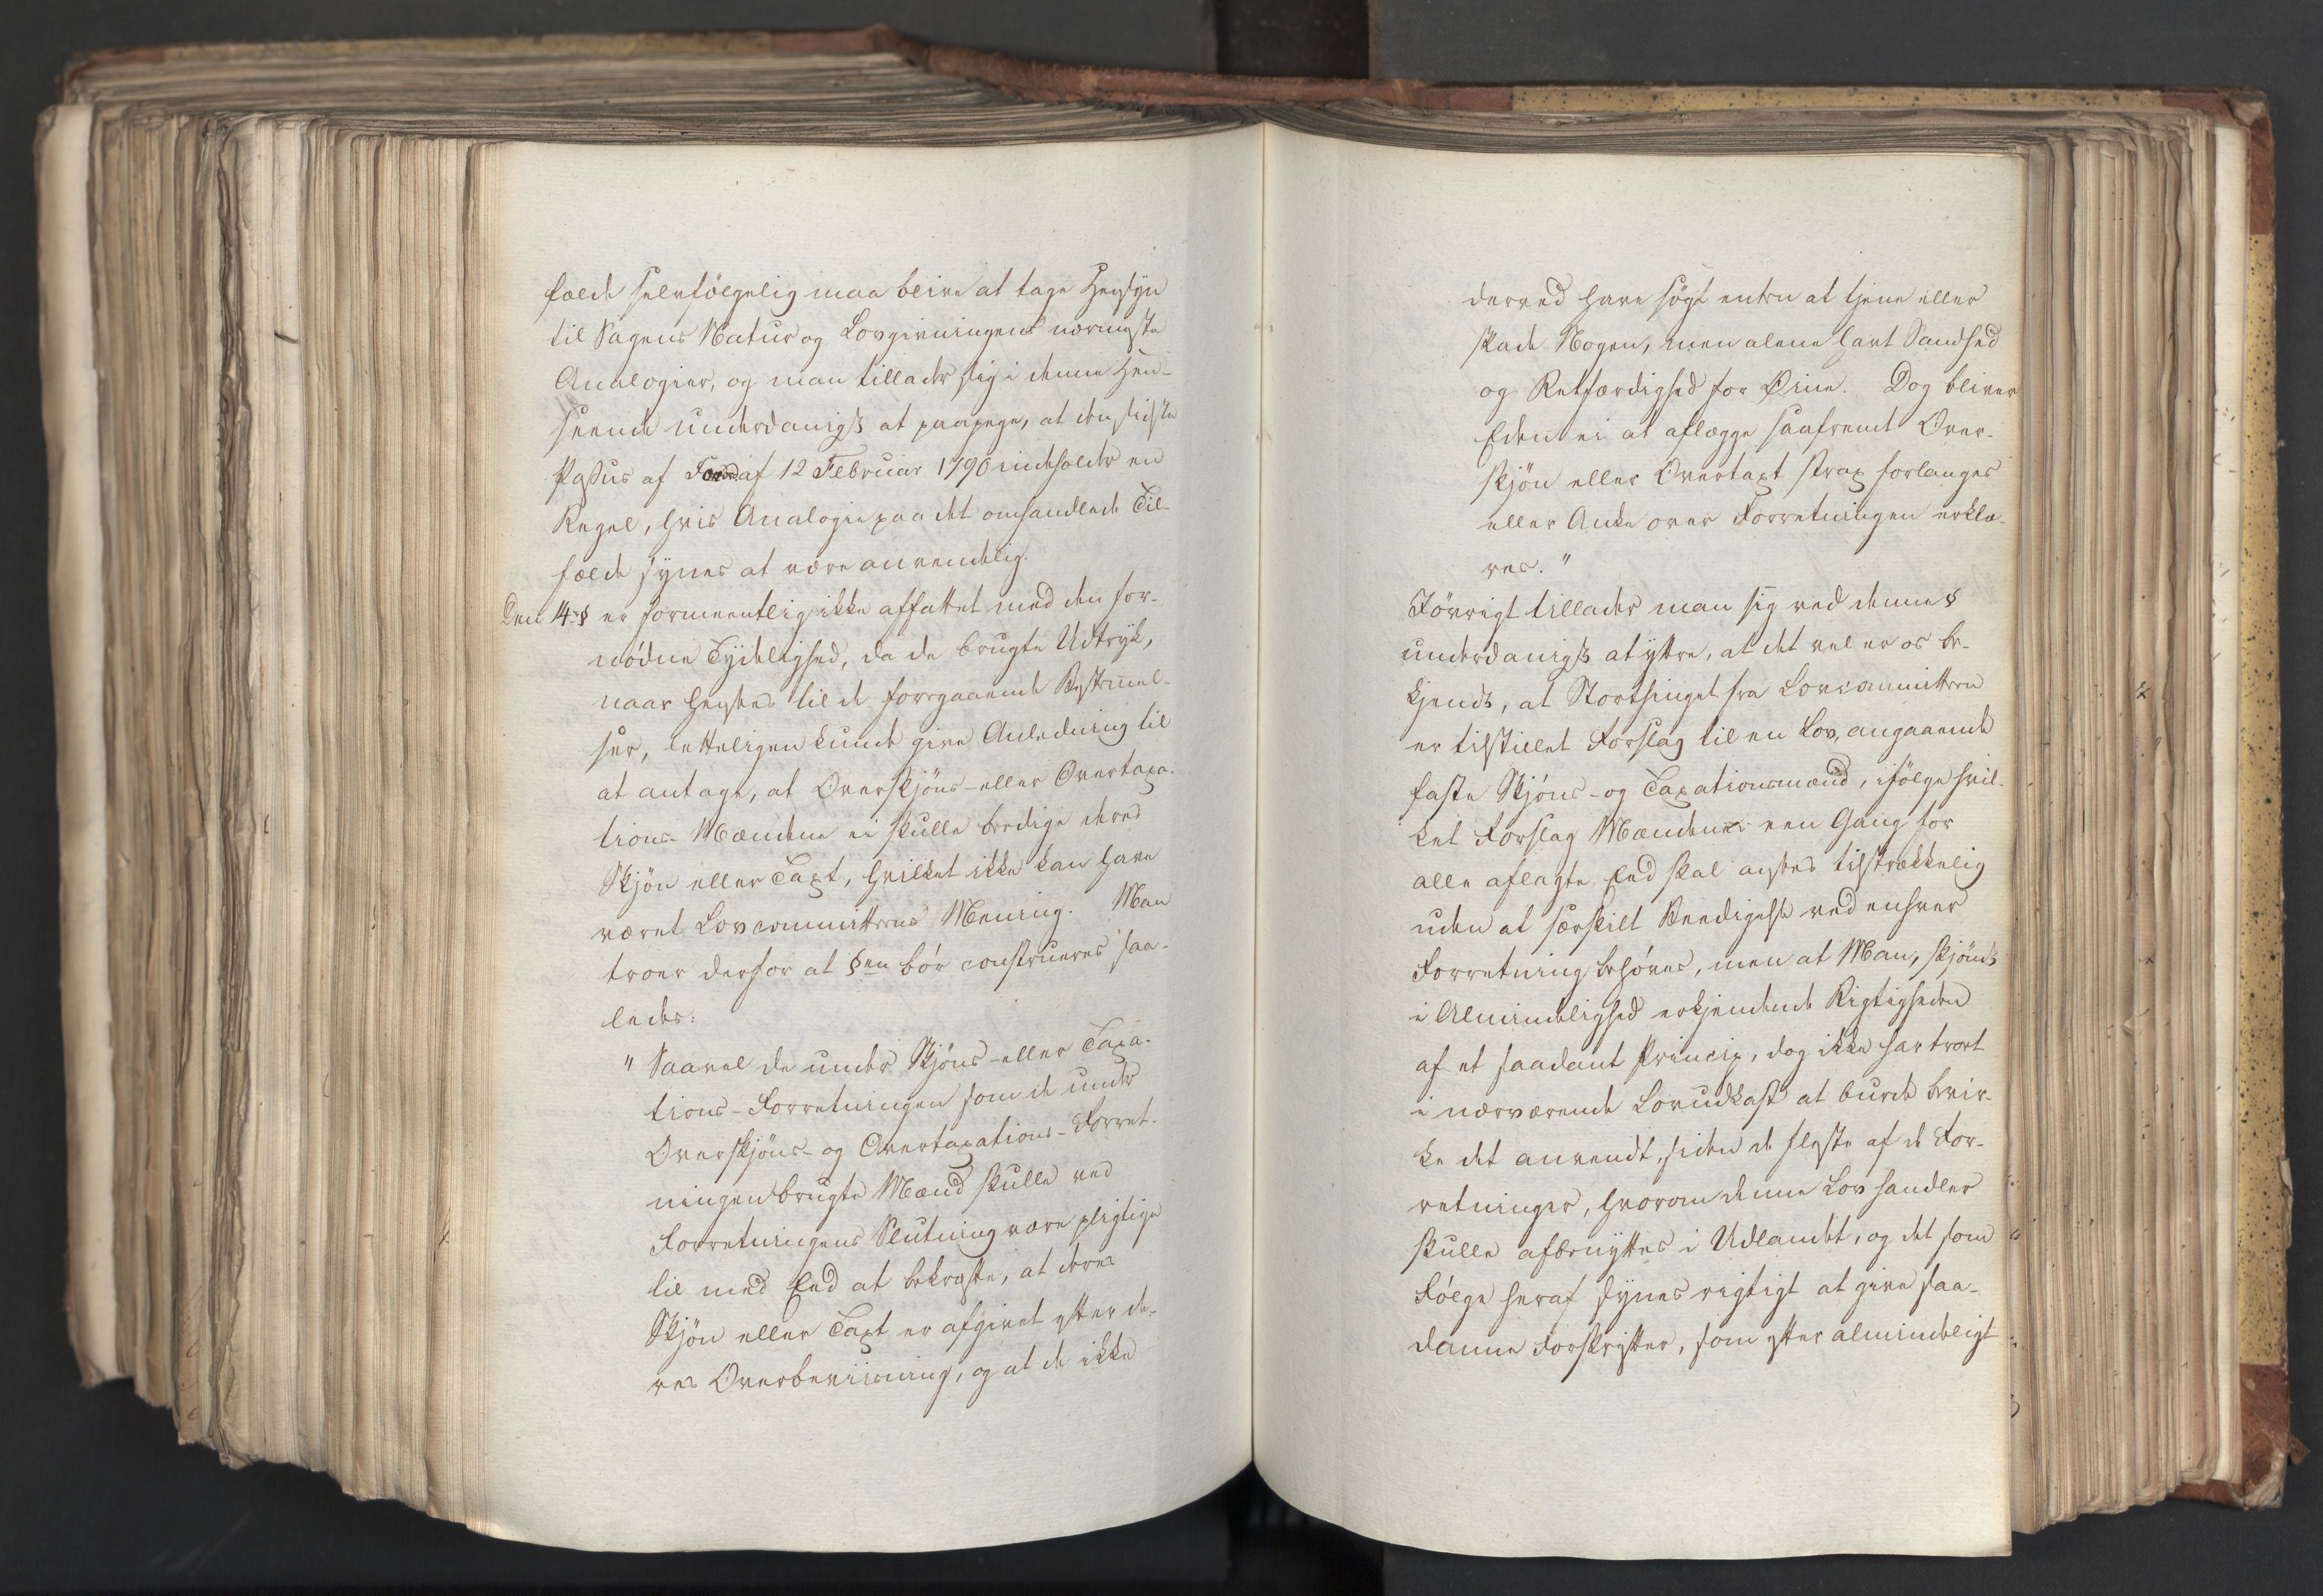 fælde selvfølgelig maa blive at tage Hensyn
til Sagens Natur og Lovgivningens nærmeste
Analogier, og man tillader sig i denne Hen-
seende underdanigst at paapege, at den sidste
Passus af Forord. af 12 Februar 1790 indeholder en
Regel, hvis Analogie paa det omhandlede Til-
fælde synes at være anvendelig.
Den 14de § er formeentlig ikke affattet med den for-
nødne Tydelighed, da de brugte Udtryk,
naar henføres til de foregaaende Bestemmel-
ser, letteligen kunde give Anledning til
at antage, at Overskjøns- eller Overtaxa-
tions-Mændene ei skulle beedige deres
Skjøn eller Taxt, hvilket ikke kan have
været Lovcommitteens Mening. Man
troer derfor at §en bør construeres saa-
ledes:
" Saavel de under Skjøns- eller Taxa-
tions-Forretningen som de under
Overskjøns- og Overtaxations-Forret-
ningen brugte Mænd skulle ved
Forretningens Slutning være pligtige
til med Eed at bekræfte, at deres
Skjøn eller Taxt er afgivet efter de-
res Overbeviisning, og at de ikke
derved have søgt enten at tjene eller
skade Nogen, men alene havt Sandhed
og Retfærdighed for Øine. Dog bliver
Eden ei at aflægge saafremt Over-
skjøn eller Overtaxt strax forlanges
eller Anke over Forretningen erklæ-
res."
Iøvrigt tillader man sig ved denne §
underdanigst at yttre, at det vel er os be-
kjendt, at Storthinget fra Lovcommitteen
er tilstillet Forslag til en Lov, angaaende
faste Skjøns- og Taxationsmænd, ifølge hvil-
ket Forslag Mændenes een Gang for
alle aflagte Eed skal agtes tilstrækkelig
uden at særskilt Beedigelse ved enhver
Forretning behøves, men at Man, skjøndt
i Almindelighed erkjendende Rigtigheden
af et saadant Princip, dog ikke har troet
i nærværende Lovudkast at burde bevir-
ke det anvendt, siden de fleste af de For-
retninger, hvorom denne Lov handler
skulle afbenyttes i Udlandet, og det som
Følge heraf synes rigtigt at give saa-
danne Forskrifter, som efter almindeligt